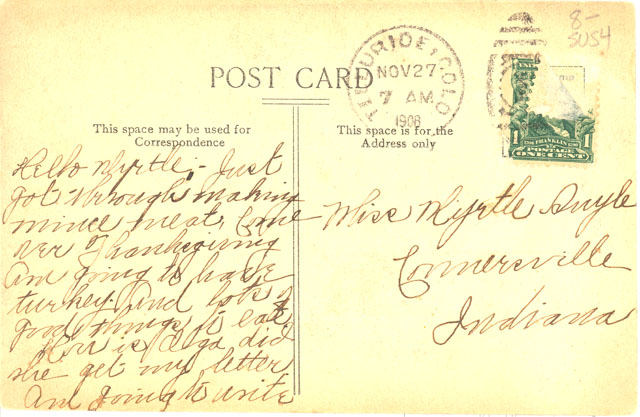 8-
SU54
TELLURIDE, COLO.
NOV 27
7 AM
1908
POST CARD
This space may be used for
Correspondence
This space is for the
Address only
FRANKLIN
1 POSTAGE 1
ONE CENT
Hello Myrtle,- Just
got through making
mince meat, Come
over Thanksgiving
Am going to have
turkey and lots of
good things to eat
How is Olga did
she get my letter.
Am going to write
Miss Myrtle
Connersville
Indiana